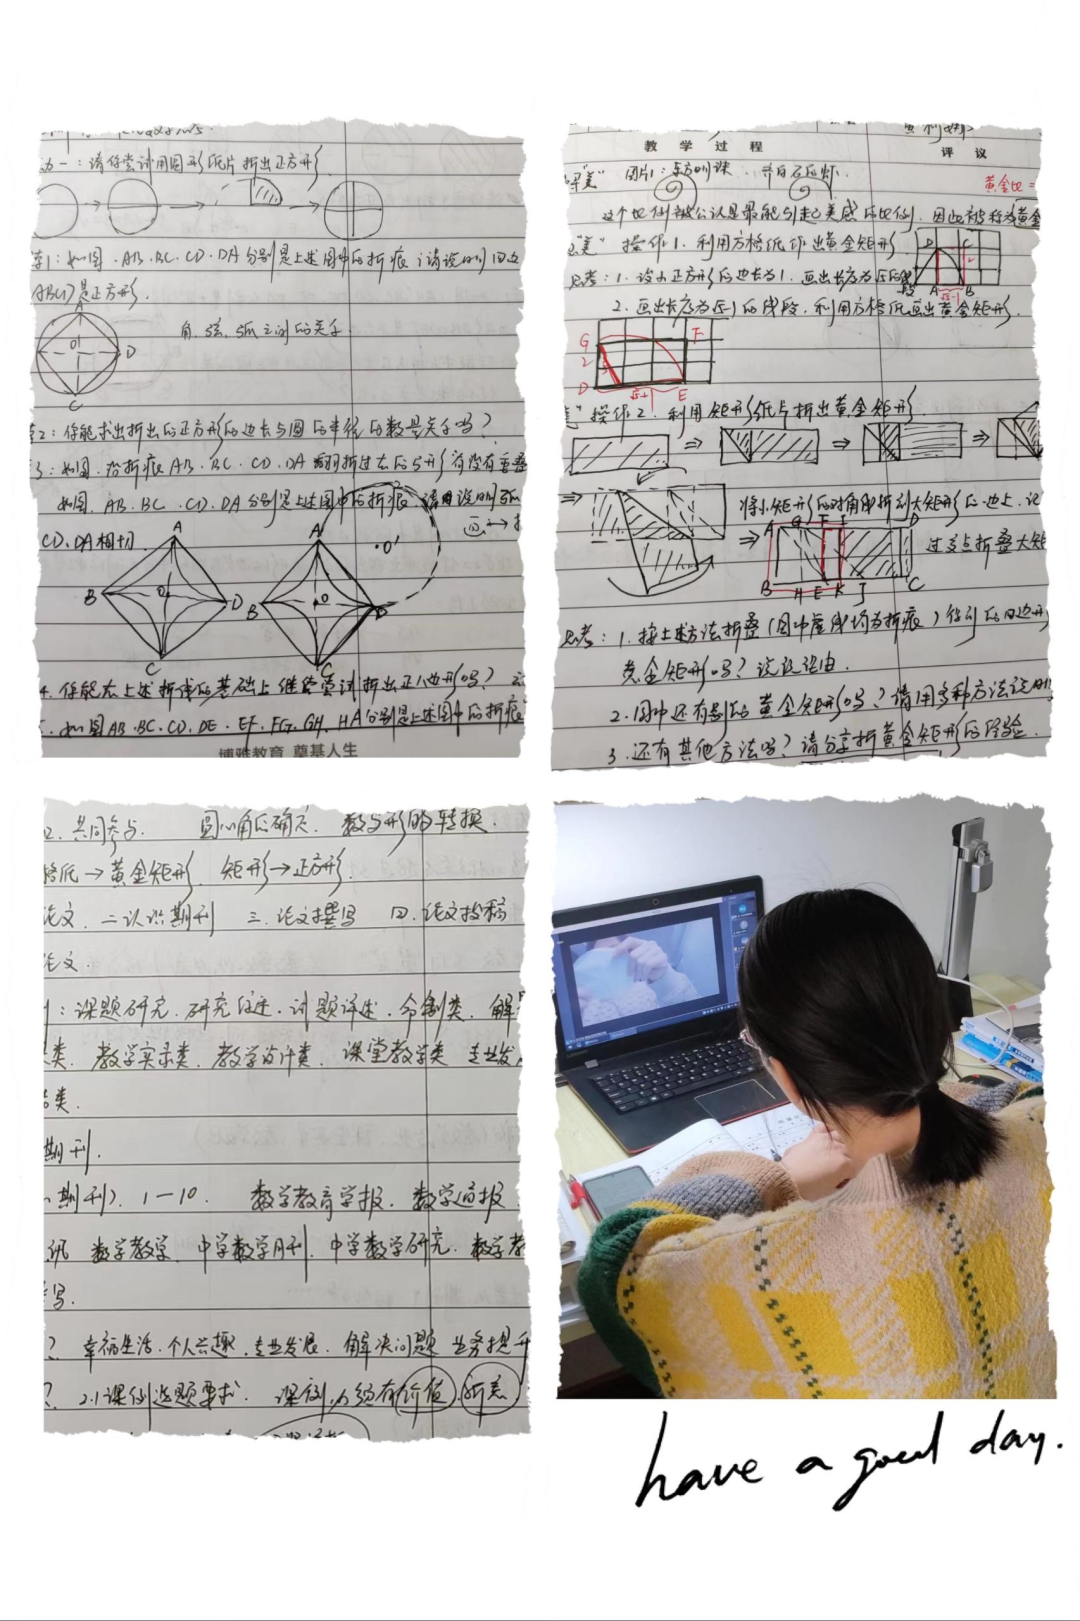 动一：请你尝试用圆形纸片折出正方形
1：如图，AB、BC、CD、DA分别是上述图中的折痕，请说明四边
ABCD是正方形．
A
角、弦、弧之间的关系
O
D
C
2：你能求出折出的正方形的边长与圆的半径的数量关系吗？
3：如图，沿折痕AB、BC、CD、DA翻折过去的弓形有没有重叠
如图，AB、BC、CD、DA分别是上述图中的折痕，请说明弧
CD、DA相切．
A A O'
B O D B O D
C C
4．你能在上述折传的基础上继续尝试折出正八边形吗？
如图AB、BC、CD、DE、EF、FG、GH、HA分别是上述图中的折痕
博雅教育 奠基人生
教 学 过 程 评 议
美" 图片1：东方明珠
黄金比=
这个比例被公认是最能引起美感的比例，因此被称为黄金
"美" 操作1．利用方格纸作出黄金矩形
思考：1．设小正方形的边长为1，画出长度为√5的线段
A B
2．画出长度为√5-1的线段，利用方格纸画出黄金矩形．
G F
2
D E
√5+1
操作2．利用矩形纸片折出黄金矩形
将小矩形的对角线折到大矩形的边上，记
A G F I D
过交点折叠大矩
B H E K J C
思考：1．按上述方法折叠（图中虚线均为折痕）得到的四边形
黄金矩形吗？说说理由．
2．图中还有别的黄金矩形吗？请用多种方法说明
3．还有其他方法吗？请分享折黄金矩形的经验．
四、共同参与． 圆心角的确定．数与形的转换．
格纸→黄金矩形．矩形→正方形．
论文．二认识期刊 三．论文撰写 四．论文投稿
论文．
：课题研究．研究综述．试题评述．命制类．解
类．教学实录类．教学设计类．课堂教学类 专业发
类．
期刊．
期刊）．1—10． 数学教育学报．数学通报
讯 数学教学．中学数学月刊．中学数学研究．数学教
写．
？ 幸福生活．个人兴趣．专业发展．解决问题 业务提升
2.1课例选题要求． 课例，必须有价值．新意
have a good day.